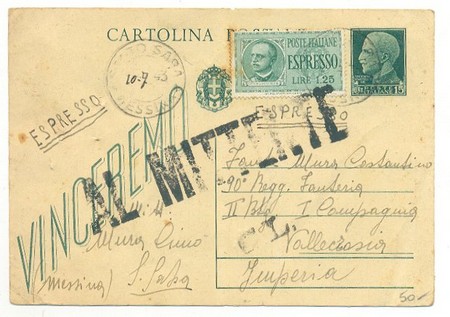 CARTOLINA POSTALE
POSTE ITALIANE
ESPRESSO
LIRE 1.25
15
10-7 43
MESSINA
ESPRESSO
ESPRESSO
VINCEREMO
AL MITTENTE
Fante Mura Costantino
90° Regg. Fanteria
II Btg. I Compagnia
Vallecrosia
Imperia
Mitt.
Mura Cimo
(Messina) S. Saba
50-